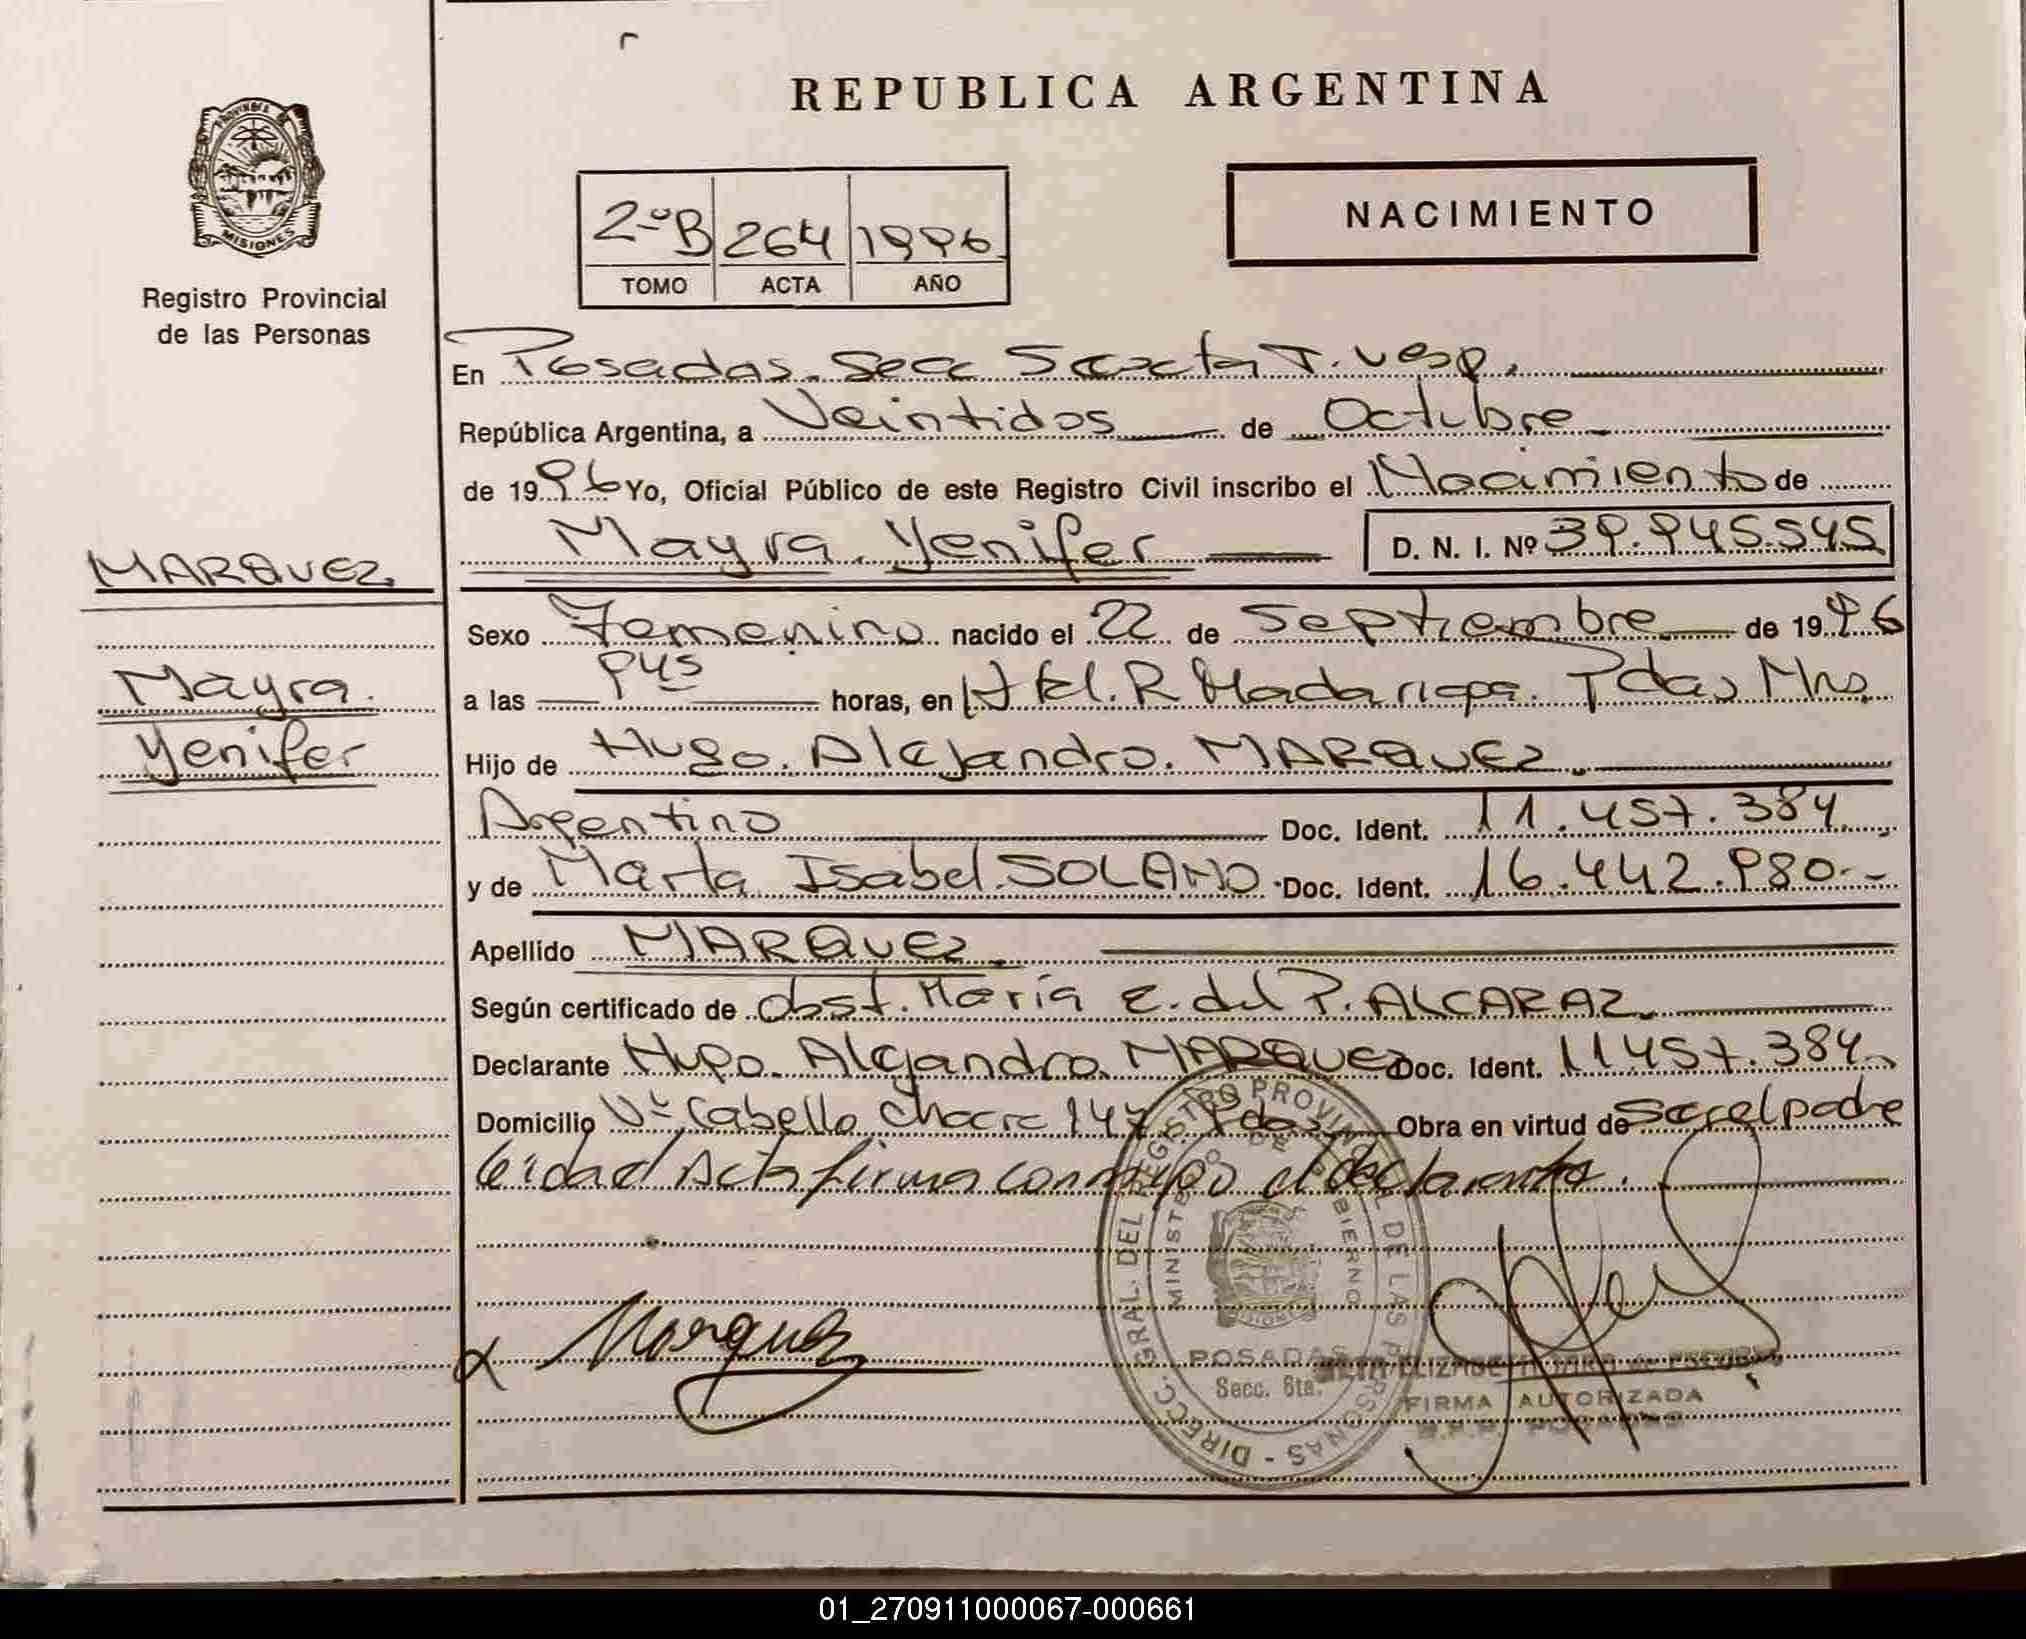 REPUBLICA ARGENTINA
PROVINCIA DE
MISIONES
Registro Provincial
de las Personas
NACIMIENTO
2-ºB 264 1996
TOMO ACTA AÑO
En Posadas. Secc Sexta T. Vesp.
República Argentina, a Veintidos de Octubre
de 1996 Yo, Oficial Público de este Registro Civil inscribo el Nacimiento de
Mayra Yenifer D. N. I. Nº 39.945.545
MARQUEZ
Mayra
Yenifer
Sexo Femenino nacido el 22 de Septiembre de 1996
a las 945 horas, en H tal. R Madariaga. Pdas Mns
Hijo de Hugo. Alejandro. MARQUEZ.
Argentino Doc. Ident. 11.457.384
y de Marta Isabel. SOLANO Doc. Ident. 16.442.980.-
Apellido MARQUEZ
Según certificado de obst. María E. del P. ALCARAZ
Declarante Hugo. Alejandro. MARQUEZ Doc. Ident. 11457.384
Domicilio Vº Cabello Chacra 147 Pdas Obra en virtud de ser el padre
leida el Acta firma conmigo el declarante.
Marquez
DIRECC. GRAL. DEL REGISTRO PROVINCIAL DE LAS PERSONAS
MINISTERIO DE GOBIERNO
POSADAS
Secc. 6ta.
ELIZABETH
FIRMA AUTORIZADA
R.P.P. POSADAS
01_270911000067-000661